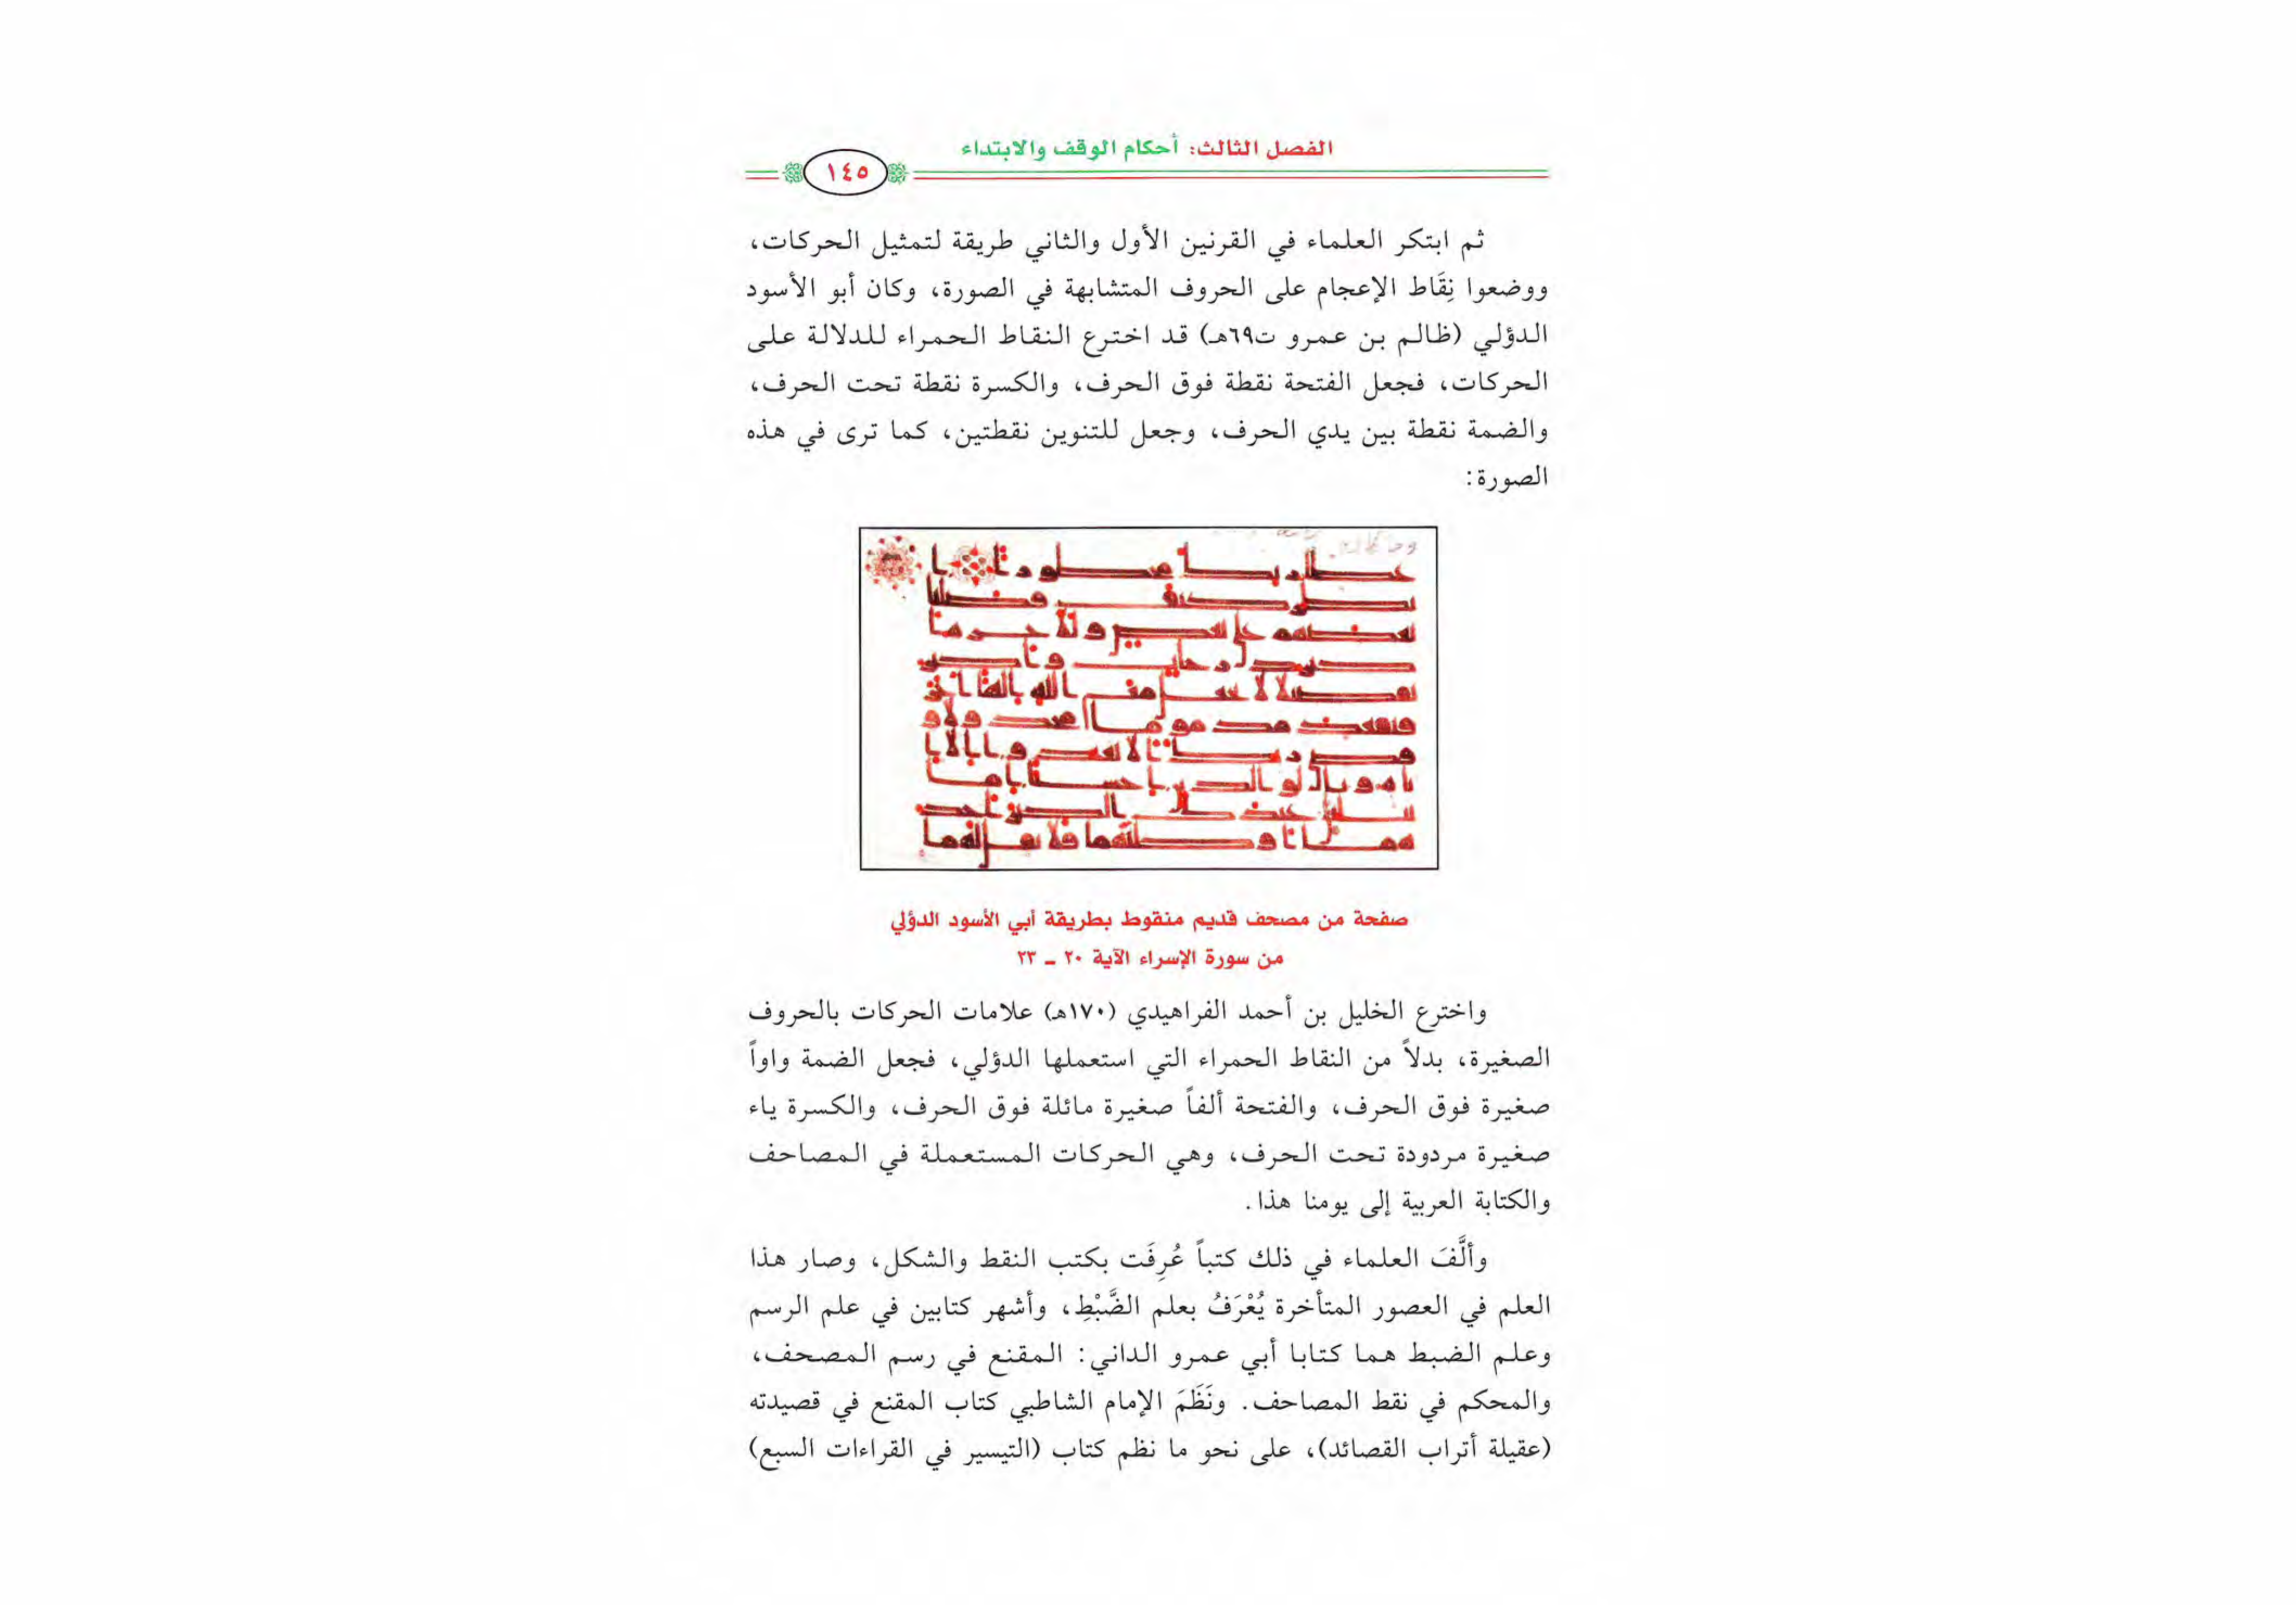 الفصل الثالث: أحكام الوقف والابتداء
١٤٥
ثم ابتكر العلماء في القرنين الأول والثاني طريقة لتمثيل الحركات،
ووضعوا نِقَاط الإعجام على الحروف المتشابهة في الصورة، وكان أبو الأسود
الدؤلي (ظالم بن عمرو ت٦٩هـ) قد اخترع النقاط الحمراء للدلالة على
الحركات، فجعل الفتحة نقطة فوق الحرف، والكسرة نقطة تحت الحرف،
والضمة نقطة بين يدي الحرف، وجعل للتنوين نقطتين، كما ترى في هذه
الصورة:
صفحة من مصحف قديم منقوط بطريقة أبي الأسود الدؤلي
من سورة الإسراء الآية ٢٠ - ٢٣
واخترع الخليل بن أحمد الفراهيدي (١٧٠هـ) علامات الحركات بالحروف
الصغيرة، بدلاً من النقاط الحمراء التي استعملها الدؤلي، فجعل الضمة واواً
صغيرة فوق الحرف، والفتحة ألفاً صغيرة مائلة فوق الحرف، والكسرة ياء
صغيرة مردودة تحت الحرف، وهي الحركات المستعملة في المصاحف
والكتابة العربية إلى يومنا هذا.
وألَّفَ العلماء في ذلك كتباً عُرِفَت بكتب النقط والشكل، وصار هذا
العلم في العصور المتأخرة يُعْرَفُ بعلم الضَّبْطِ، وأشهر كتابين في علم الرسم
وعلم الضبط هما كتابا أبي عمرو الداني: المقنع في رسم المصحف،
والمحكم في نقط المصاحف. ونَظَمَ الإمام الشاطبي كتاب المقنع في قصيدته
(عقيلة أتراب القصائد)، على نحو ما نظم كتاب (التيسير في القراءات السبع)